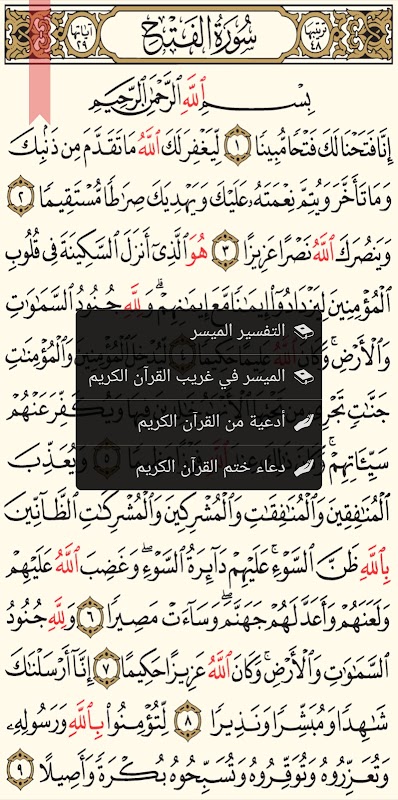 ترتيبها ٤٨ سُورَةُ الفَتْحِ آياتها ٢٩
بِسْمِ ٱللَّهِ ٱلرَّحْمَٰنِ ٱلرَّحِيمِ
إِنَّا فَتَحْنَا لَكَ فَتْحًا مُّبِينًا ١ لِّيَغْفِرَ لَكَ ٱللَّهُ مَا تَقَدَّمَ مِن ذَنۢبِكَ
وَمَا تَأَخَّرَ وَيُتِمَّ نِعْمَتَهُۥ عَلَيْكَ وَيَهْدِيَكَ صِرَٰطًا مُّسْتَقِيمًا ٢
وَيَنصُرَكَ ٱللَّهُ نَصْرًا عَزِيزًا ٣ هُوَ ٱلَّذِىٓ أَنزَلَ ٱلسَّكِينَةَ فِى قُلُوبِ
ٱلْمُؤْمِنِينَ لِيَزْدَادُوٓا۟ إِيمَٰنًا مَّعَ إِيمَٰنِهِمْ ۗ وَلِلَّهِ جُنُودُ ٱلسَّمَٰوَٰتِ
التفسير الميسر
وَٱلْأَرْضِ ۚ وَكَانَ ٱللَّهُ عَلِيمًا حَكِيمًا ٤ لِّيُدْخِلَ ٱلْمُؤْمِنِينَ وَٱلْمُؤْمِنَٰتِ
الميسر في غريب القرآن الكريم
جَنَّٰتٍ تَجْرِى وَيُكَفِّرَ عَنْهُمْ
أدعية من القرآن الكريم
سَيِّـَٔاتِهِمْ ۚ وَكَانَ وَيُعَذِّبَ
دعاء ختم القرآن الكريم
ٱلْمُنَٰفِقِينَ وَٱلْمُنَٰفِقَٰتِ وَٱلْمُشْرِكِينَ وَٱلْمُشْرِكَٰتِ ٱلظَّآنِّينَ
بِٱللَّهِ ظَنَّ ٱلسَّوْءِ ۚ عَلَيْهِمْ دَآئِرَةُ ٱلسَّوْءِ ۖ وَغَضِبَ ٱللَّهُ عَلَيْهِمْ
وَلَعَنَهُمْ وَأَعَدَّ لَهُمْ جَهَنَّمَ ۖ وَسَآءَتْ مَصِيرًا ٦ وَلِلَّهِ جُنُودُ
ٱلسَّمَٰوَٰتِ وَٱلْأَرْضِ ۚ وَكَانَ ٱللَّهُ عَزِيزًا حَكِيمًا ٧ إِنَّآ أَرْسَلْنَٰكَ
شَٰهِدًا وَمُبَشِّرًا وَنَذِيرًا ٨ لِّتُؤْمِنُوا۟ بِٱللَّهِ وَرَسُولِهِۦ
وَتُعَزِّرُوهُ وَتُوَقِّرُوهُ وَتُسَبِّحُوهُ بُكْرَةً وَأَصِيلًا ٩